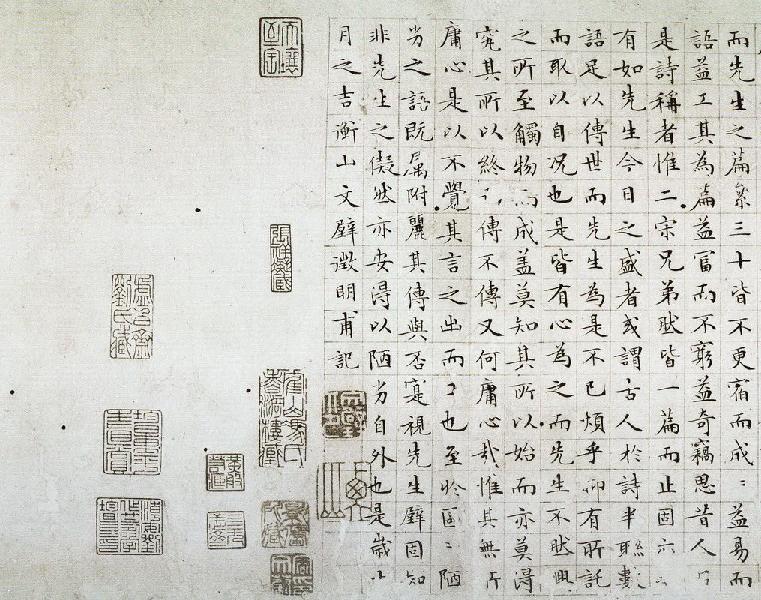 而先生之篇累三十皆不更宿而成:益易而
語益工其為篇益富而不窮益奇竊思昔人以
是詩稱者惟二宋兄弟然皆一篇而止固
有如先生今日之盛者或謂古人於詩半聯數
語足以傳世而先生為是不已煩乎抑有所託
而取以自況也是皆有心為之而先生不然興
之所至觸物而成蓋莫知其所以始而亦莫得
究其所以終傳不傳又何庸心哉惟其無所
庸心是以不覺其言之出而工也至於區:陋
劣之語既屬附麗其傳與否寔視先生壁固知
非先生之儗然亦安得以陋劣自外也是歲十
月之吉衡山文壁徵明甫記